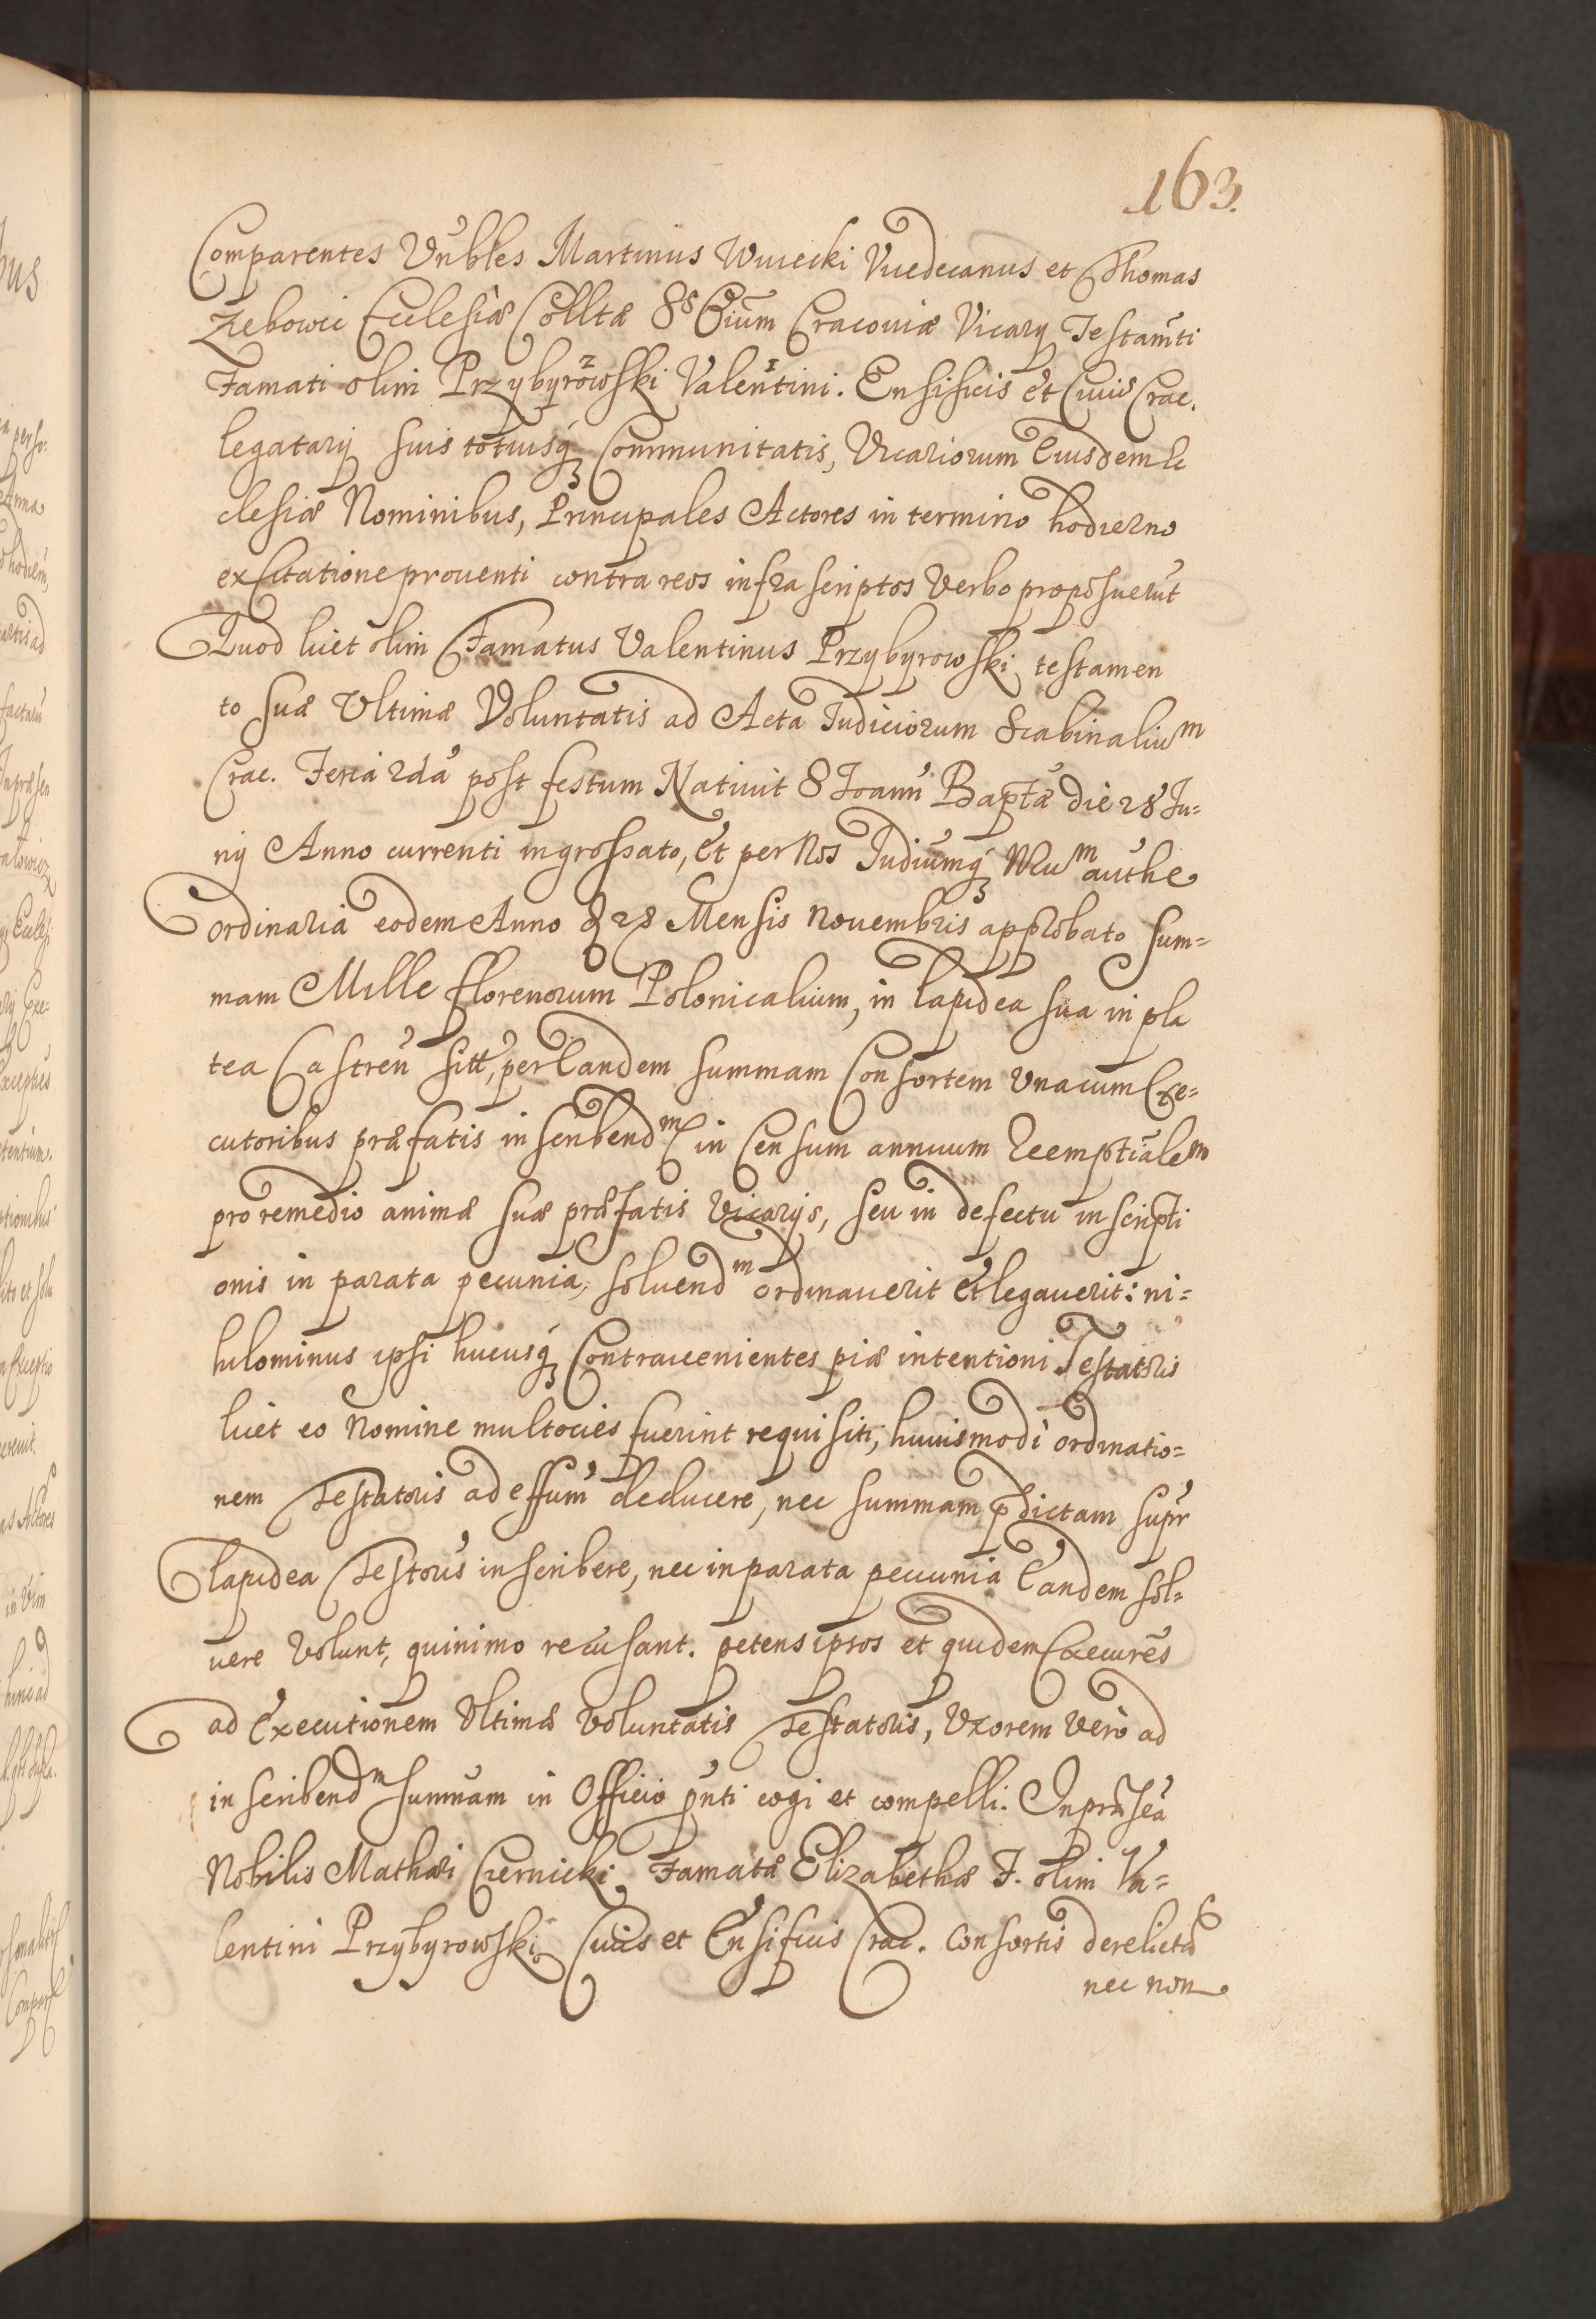 163.
Comparentes Vnbles Martinus Wuiecki Vicedecanus et Thomas
Zebowic Ecclesiæ Colltæ SS Oium Cracouiæ Vicarÿ Testamti
Famati olim Przybyrowski Valentini. Ensificis et Ciuis Crac.
legatarÿ suis totiusq Communitatis, Vicariorum Eiusdem Ec
clesiæ Nominibus, Principales Actores in termino hodierno
ex Citatione prouenti contra reos infra scriptos Verbo proposuerut
Quod licet olim Famatus Valentinus Przybyrowski testamen
to suæ Vltimæ Voluntatis ad Acta Iudiciorum Scabinalium
Crac. Feria 2da post festum Natiuit S Joann Baptæ die 28 Ju=
nÿ Anno currenti ingrossato, et per Nos Iudiumq authe
ordinaria eodem Anno d 28 Mensis Nouembris approbato sum=
mam Mille florenorum Polonicalium, in lapidea sua in pla
tea Castren sitt, per Eandem summam Consortem Vnacum Exe=
cutoribus præfatis inscribendm in Censum annuum Reemptialem
pro remedio animæ suæ præfatis Vicarÿs, seu in defectu inscripti
onis in parata pecunia, soluendm ordinauerit et legauerit: ni=
hilominus ipsi hucusq Contrauenientes piæ intentioni Testatoris
licet eo Nomine multocies fuerint requisiti, huiusmodi ordinatio=
nem Testatoris ad effum deducere, nec summam pdictam supr
lapidea Testoris inscribere, nec in parata pecunia Eandem sol=
uere Volunt, quinimo recusant. petens ipsos et quidem Execures
ad Executionem Vltimæ Voluntatis Testatoris, Vxorem Vero ad
inscribendm summam in Officio pnti cogi et compelli. In præsea
Nobilis Mathæi Czernicki Famatæ Elizabethæ F. olim Va=
lentini Przybyrowski Ciuis et Ensificis Crac. Consortis derelictæ
nec non